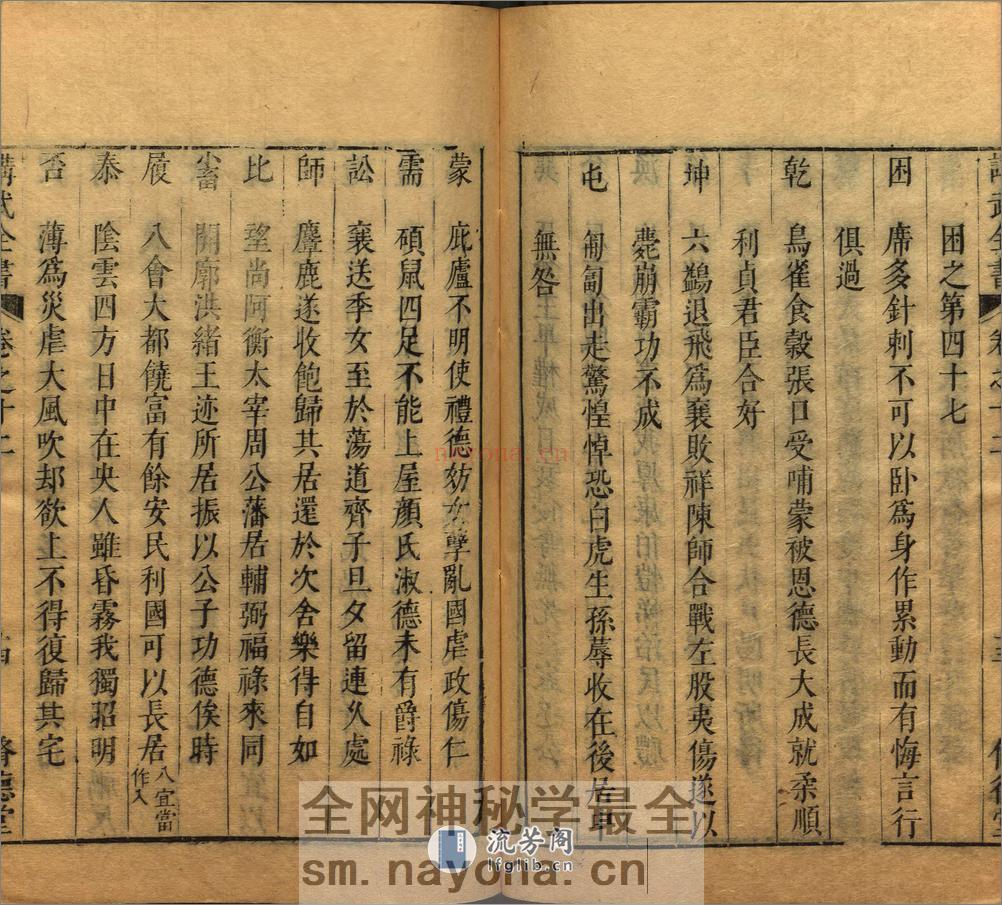 困之第四十七
困 席多針刺不可以卧爲身作累動而有悔言行
俱過
乾 鳥雀食穀張口受哺蒙被恩德長大成就柔順
利貞君臣合好
坤 六鷁退飛爲襄敗祥陳師合戰左股夷傷遂以
薨崩霸功不成
屯 匍匐出走驚惶悼恐白虎生孫蓐收在後居中
無咎
蒙 庇廬不明使禮德妨女孽亂國虐政傷仁
需 碩鼠四足不能上屋顔氏淑德未有爵祿
訟 襄送季女至於蕩道齊子旦夕留連久處
師 麞鹿遂收飽歸其居還於次舍樂得自如
比 望尚阿衡太宰周公藩居輔弼福祿來同
小畜 開廓洪緒王迹所居振以公子功德俟時
履 八會大都饒富有餘安民利國可以長居八宜當作入
泰 陰雲四方日中在央人雖昏霧我獨昭明
否 薄爲災虐大風吹却欲上不得復歸其宅
講武全書 卷之十二
全网神秘学最全
sm.nayona.cn
流芳阁
lfglib.cn
nayona.cn